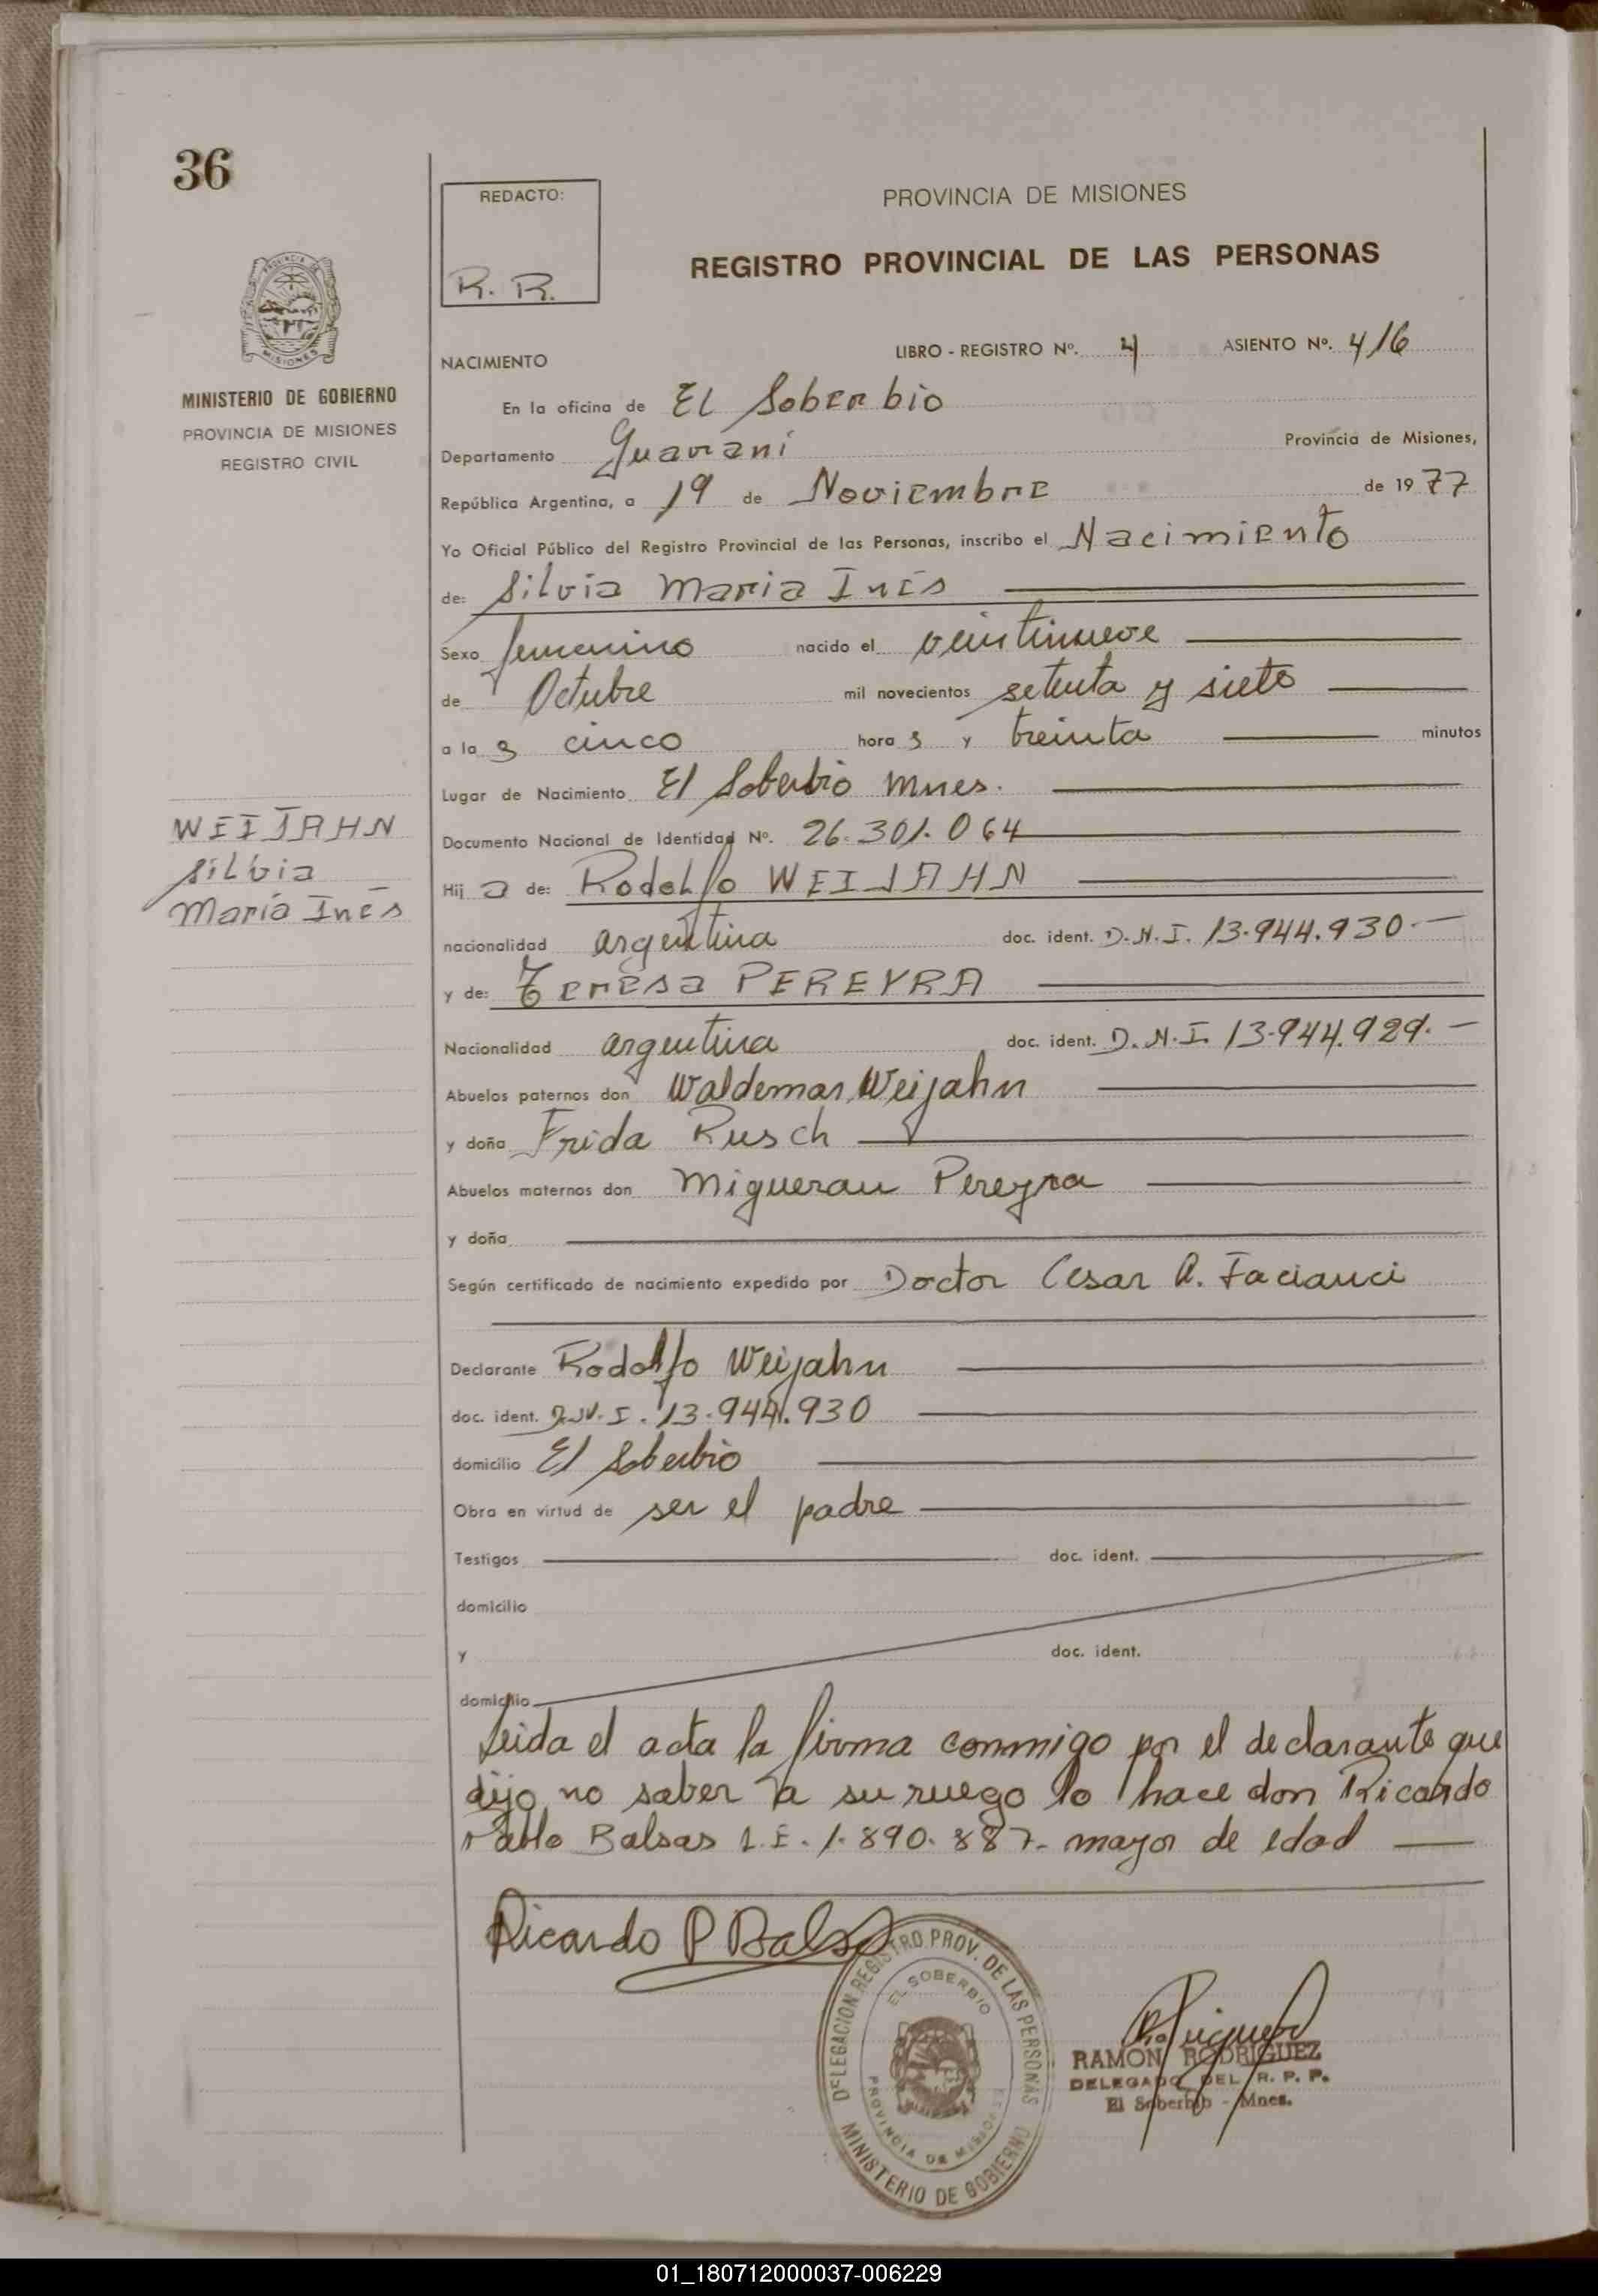 36
REDACTO:
R. R.
PROVINCIA DE MISIONES
REGISTRO PROVINCIAL DE LAS PERSONAS
MINISTERIO DE GOBIERNO
PROVINCIA DE MISIONES
REGISTRO CIVIL
NACIMIENTO
LIBRO - REGISTRO Nº. 4 ASIENTO Nº. 416
En la oficina de El Soberbio
Departamento Guaraní Provincia de Misiones,
República Argentina, a 19 de Noviembre de 1977
Yo Oficial Público del Registro Provincial de las Personas, inscribo el Nacimiento
de: Silvia Maria Inés
Sexo femenino nacido el veintinueve
de Octubre mil novecientos setenta y siete
a la s cinco hora s y treinta minutos
Lugar de Nacimiento El Soberbio Mnes.
Documento Nacional de Identidad Nº. 26.301.064
WEIJAHN
Silvia
María Inés
Hij a de: Rodolfo WEIJAHN
nacionalidad argentina doc. ident. D.N.I. 13.944.930.-
y de: Teresa PEREYRA
Nacionalidad argentina doc. ident. D.N.I. 13.944.929.-
Abuelos paternos don Waldemar Weijahn
y doña Frida Rusch
Abuelos maternos don Miguerau Pereyra
y doña
Según certificado de nacimiento expedido por Doctor Cesar A. Facianci
Declarante Rodolfo Weijahn
doc. ident. D.N.I. 13.944.930
domicilio El Soberbio
Obra en virtud de ser el padre
Testigos doc. ident.
domicilio
y doc. ident.
domicilio
Leida el acta la firma conmigo por el declarante que
dijo no saber a su ruego lo hace don Ricardo
Pablo Balsas L.E. 1.890.887.- mayor de edad
Ricardo P Balsas
DELEGACION REGISTRO PROV. DE LAS PERSONAS
EL SOBERBIO
PROVINCIA DE MISIONES
MINISTERIO DE GOBIERNO
RAMON RODRIGUEZ
DELEGADO DEL R. P. P.
El Soberbio - Mnes.
01_180712000037-006229